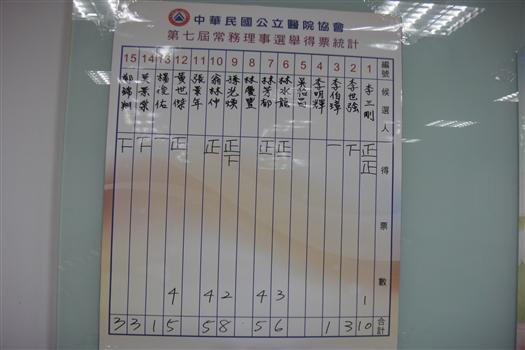 中華民國公立醫院協會
第七屆常務理事選舉得票統計
編號 1 2 3 4 5 6 7 8 9 10 11 12 13 14 15
候選人
李三剛
李世強
李伯璋
李明輝
林水龍
林芳郁
林慶豐
翁林仲
張景年
黃世傑
楊俊佑
得票數
正正
下
一
正
正
正下
正
正
一
下
下
1 3 4 2 4 4
合計 10 3 1 6 5 8 5 5 1 3 3